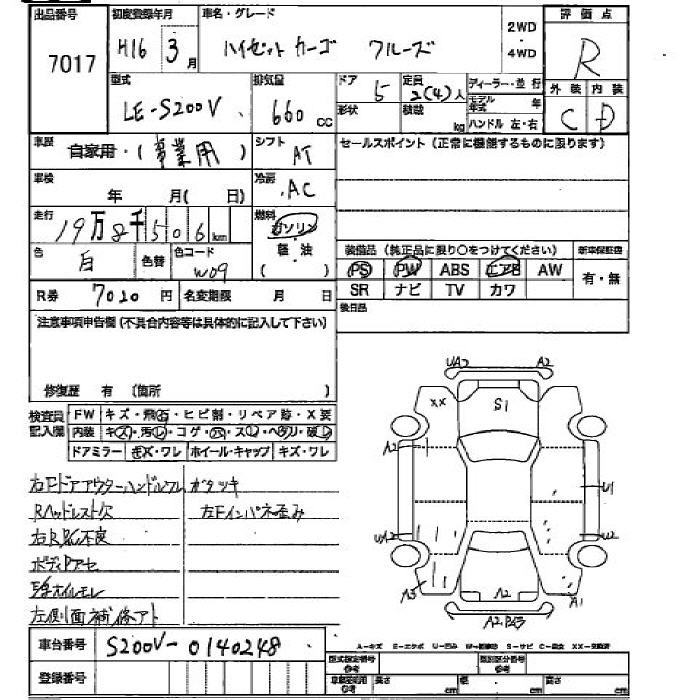 出品番号 初度登録年月 車名・グレード 2WD ・ 4WD 評価点
7017 H16 3月 ハイゼットカーゴ クルーズ R
型式 排気量 ドア 5 定員 2(4)人 ディーラー・並行 外装 内装
LE-S200V 660cc 形状 積載 kg モデル年式 年 C D
ハンドル 左・右
車歴 自家用・(事業用) シフト AT セールスポイント(正常に機能するものに限ります)
車検 年 月(日) 冷房 AC
走行 19万8千506km 燃料 ガソリン・軽油 ( )
色 白 色替 色コード W09
装備品(純正品に限り○をつけてください) 新車保証書
PS PW ABS エアB AW 有・無
SR ナビ TV カワ
R券 7020円 名変期限 月 日 後日品
注意事項申告欄(不具合内容等は具体的に記入して下さい)
修復歴 有 (箇所 )
検査員記入欄 FW キズ・飛石・ヒビ割・リペア跡・X要
内装 キズ・汚レ・コゲ・穴・スレ・ヘタリ・破レ
ドアミラー キズ・ワレ ホイール・キャップ キズ・ワレ
右Fドアアウターハンドルワレ ガタツキ
Rヘッドレスト欠 左Fインパネ歪み
ボディロアセ
左側面補修アト
UA2 A2
XX S1
A2 U1
UA2 U2
A3 A2 A1
車台番号 S200V-0140248
登録番号
A=キズ E=エクボ U=凹み W=補修跡 S=サビ C=腐食 XX=交換済
型式指定番号 参考 類別区分番号 参考
車庫証明用 参考 長さ cm 幅 cm 高さ cm